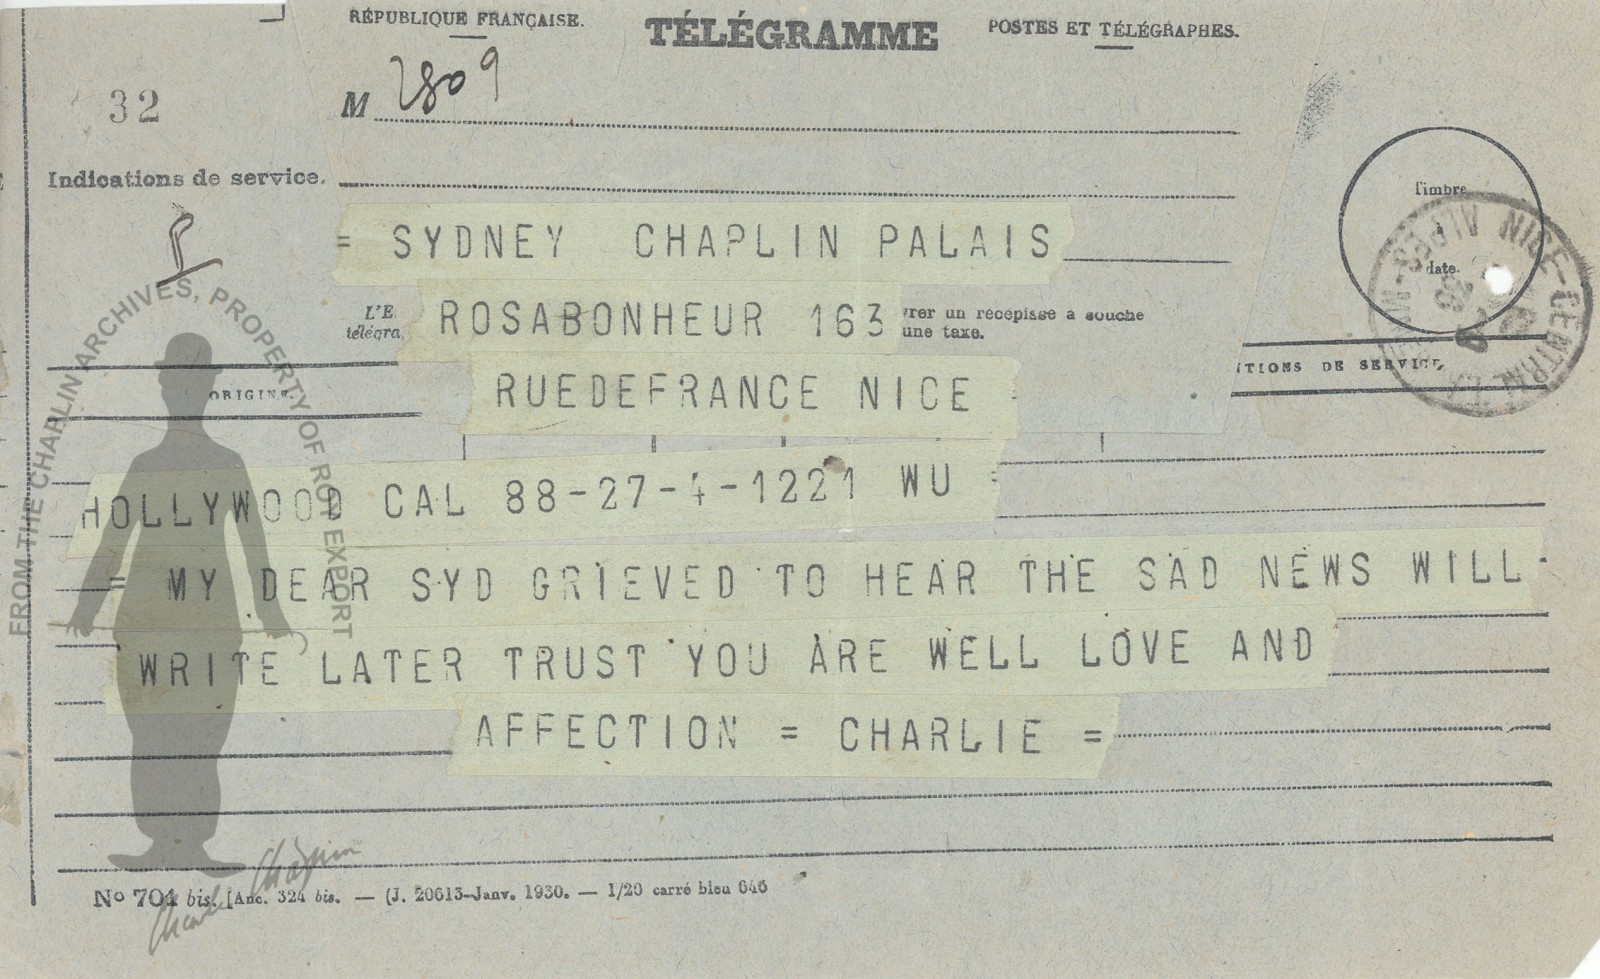 RÉPUBLIQUE FRANÇAISE.
TÉLÉGRAMME
POSTES ET TÉLÉGRAPHES.
32
M 2809
Indications de service.
Timbre
date.
NICE-CENTRAL
= SYDNEY CHAPLIN PALAIS
L'E
télégra
ROSABONHEUR 163
vrer un récépissé à souche
une taxe.
ORIGINE.
RUEDEFRANCE NICE =
TIONS DE SERVICE,
HOLLYWOOD CAL 88-27-4-1221 WU =
= MY DEAR SYD GRIEVED TO HEAR THE SAD NEWS WILL
WRITE LATER TRUST YOU ARE WELL LOVE AND
AFFECTION = CHARLIE =
No 701 bis. [Anc. 324 bis. — (J. 20613-Janv. 1930. — 1/20 carré bleu 646
FROM THE CHAPLIN ARCHIVES, PROPERTY OF ROY EXPORT
Charlie Chaplin